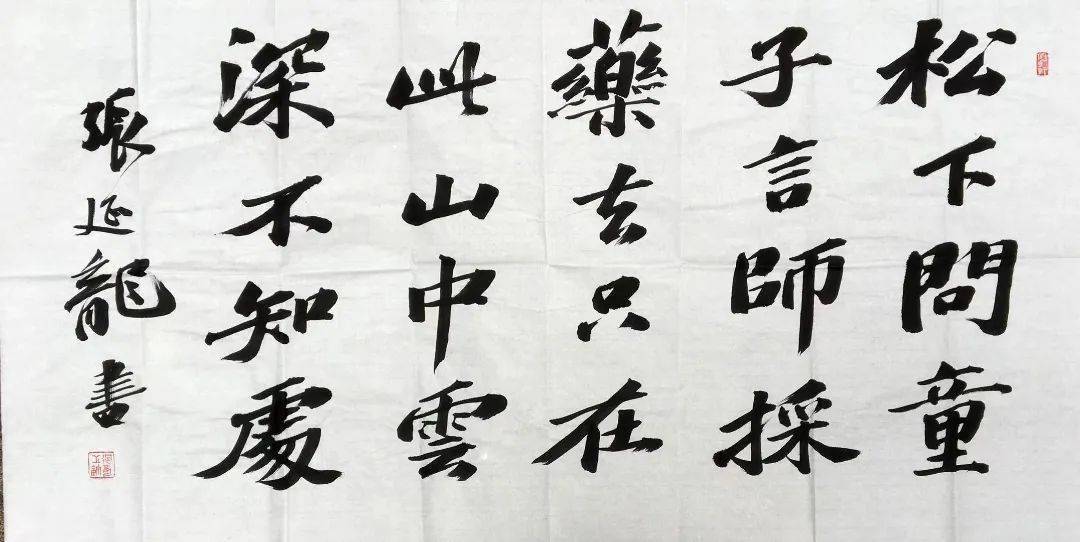 松下問童
子言師採
藥去只在
此山中雲
深不知處
張延龍書